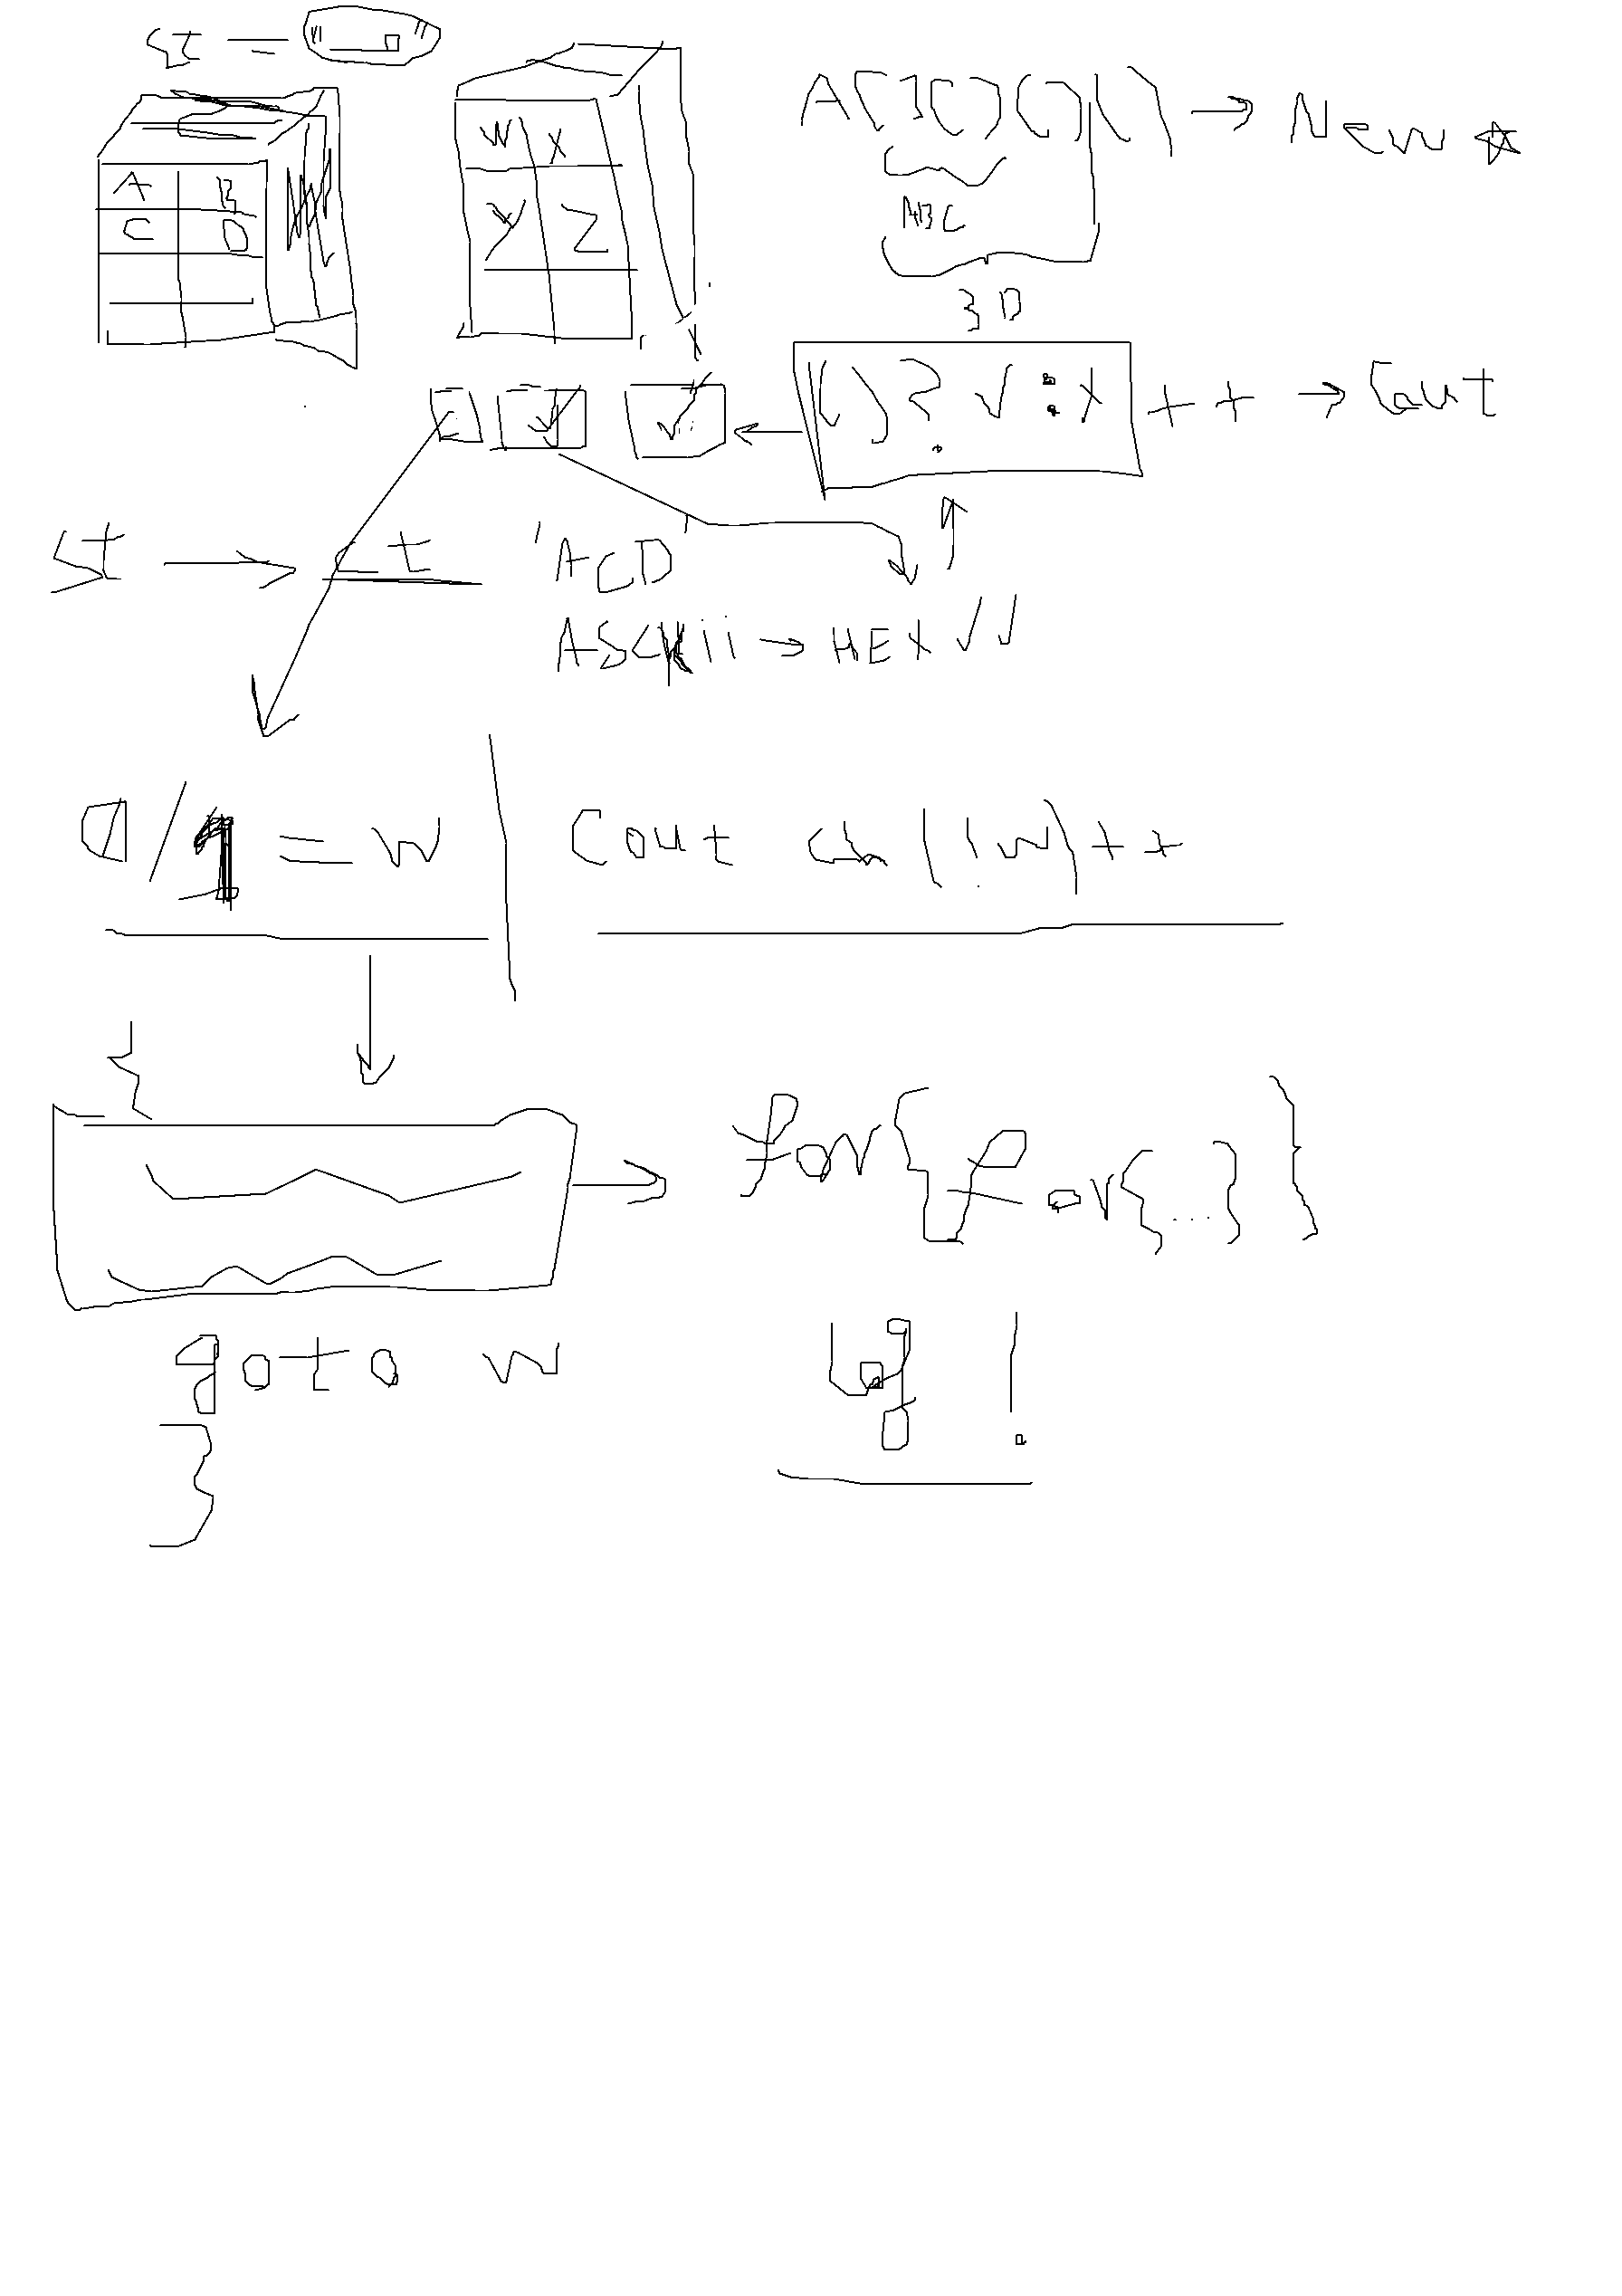 st = " "
A B
C D
W X
Y Z
A[][][][] → New *
ABC
3D
()? √ : x ++ → Cout
st → ct 'ACD'
ASCii → HEX √√
0/1 = w | Cout ch(!w)++
{
for{for{...}}
goto w
}